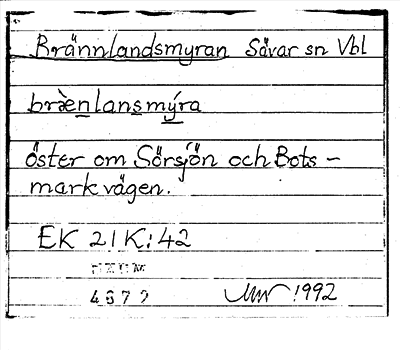 Brännlandsmyran Sävar sn Vbl
bræ̀nlansmýra
öster om Sörsjön och Bots-
mark vägen.
EK 21K:42
4672 1992